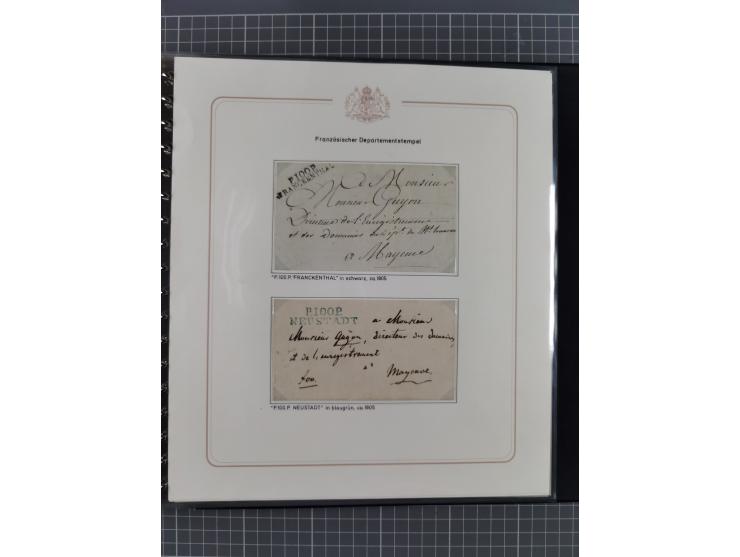 Französischer Departementstempel
P.100.P.
FRANCKENTHAL
A Monsieur
Monsieur Guyon
Directeur de l'Enregistrement
et des Domaines
a Mayence
"P.100.P."FRANCKENTHAL" in schwarz, ca.1805
P.100.P.
NEUSTADT
a Monsieur
Monsieur Guÿon, directeur des domaines
et de l'enregistrement
a
Mayence
"P.100.P. NEUSTADT" in blaugrün, ca.1805